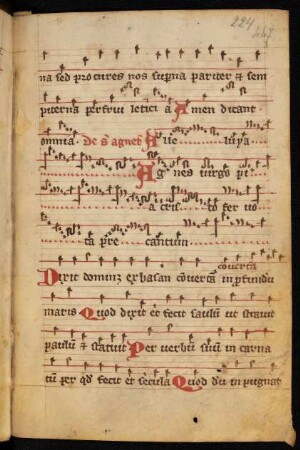 224
na sed procures nos superna pariter et sem
piterna perfrui leticia Amen dicant
omnia. De s agnet Alleluia
Agnes virgo pi
a cristo fer vo
ta precantium
converta
Dixit dominus ex basan converta in profundum
maris Quod dixit et fecit saulum ut stravit
paulum et statuit Per verbum suum in carna
tum per quod fecit et secula Quod dum inpugnat